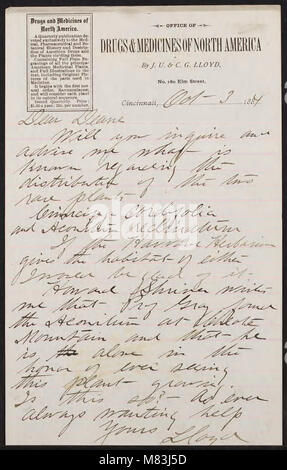 Drugs and Medicines of
North America.
A Quarterly publication de-
voted exclusively to the Med-
ical, Pharmaceutical and Bo-
tanical History and Descrip-
tion of American Drugs and
the Plants yielding them.
Containing Full Page En-
gravings of all the principal
American Medicinal Plants,
and Full Illustrations in the
text, including Original Pic-
tures of the parts used in
Medicine.
It begins with the first nat-
ural order, Ranunculaceæ,
Issued Quarterly. Price
$1.00 a year. 30c. per number.
OFFICE OF
DRUGS & MEDICINES OF NORTH AMERICA
By J. U. & C. G. LLOYD,
No. 180 Elm Street,
Cincinnati, Oct 3 1884
Dear Deane
Will you inquire and
advise me what is
known regarding the
distribution of the two
rare plants
Cimicifuga cordifolia
and Aconitum reclinatum
If the Harvard Herbarium
gives the habitat of either
I would be glad of it.
Howard Shriver writes
me that Prof Gray found
the Aconitum at
Mountain and that he
is alone in the
honor of ever seeing
this plant growing.
Is this so?
always wanting help
Yours
Lloyd
alamy
M83J5D